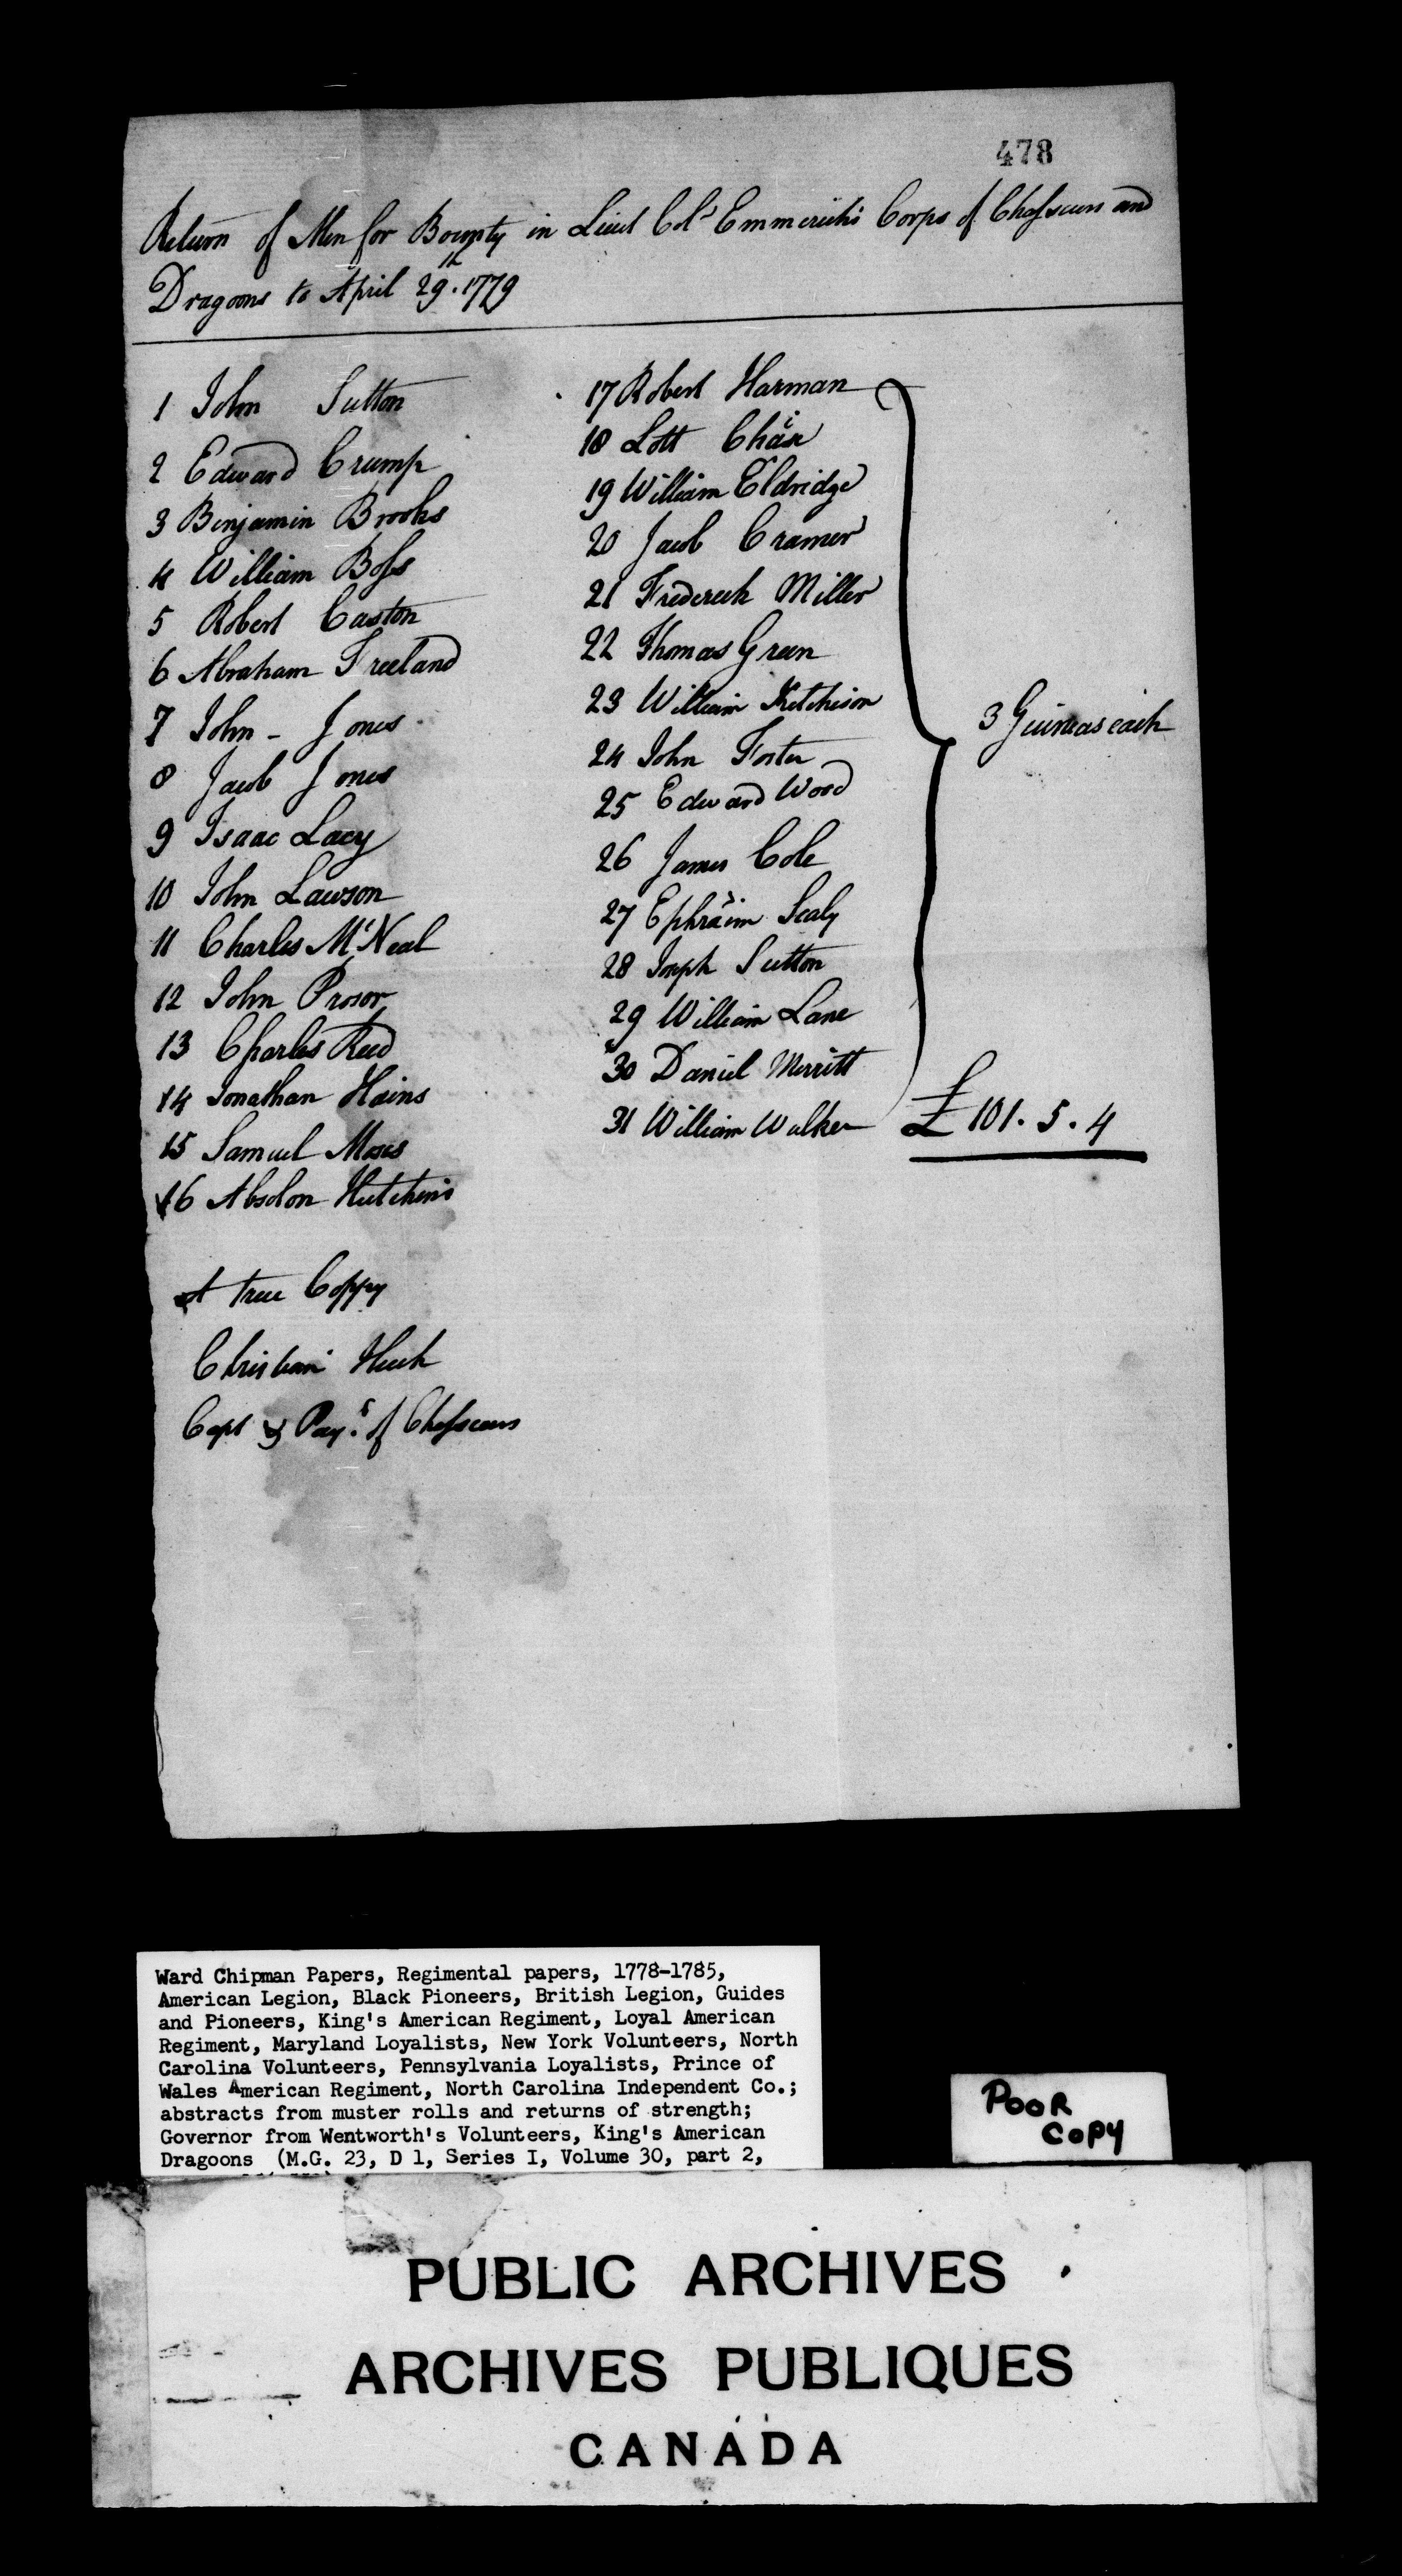 478
Return of Men for Bounty in Lieut Colº Emmerich's Corps of Chaſseurs and
Dragoons to April 29th. 1779
1 John Sutton
2 Edward Crump
3 Benjamin Brooks
4 William Boſs
5 Robert Caston
6 Abraham Freeland
7 John - Jones
8 Jacob Jones
9 Isaac Lacy
10 John Lawson
11 Charles McNeal
12 John Prosor
13 Charles Reed
14 Jonathan Hains
15 Samuel Moses
16 Absolon Hutchins
17 Robert Harman
18 Lott Chase
19 William Eldridge
20 Jacob Cramer
21 Frederick Miller
22 Thomas Green
23 William Ketchison
24 John Foster
25 Edward Wood
26 James Cole
27 Ephraim Sealy
28 Joseph Sutton
29 William Lane
30 Daniel Merritt
31 William Walker
3 Guineas each
£ 101. 5. 4
A true Coppy
Christian Huck
Capt & Payr. of Chaſseurs
Ward Chipman Papers, Regimental papers, 1778-1785,
American Legion, Black Pioneers, British Legion, Guides
and Pioneers, King's American Regiment, Loyal American
Regiment, Maryland Loyalists, New York Volunteers, North
Carolina Volunteers, Pennsylvania Loyalists, Prince of
Wales American Regiment, North Carolina Independent Co.;
abstracts from muster rolls and returns of strength;
Governor from Wentworth's Volunteers, King's American
Dragoons (M.G. 23, D 1, Series I, Volume 30, part 2,
POOR
COPY
PUBLIC ARCHIVES
ARCHIVES PUBLIQUES
CANADA